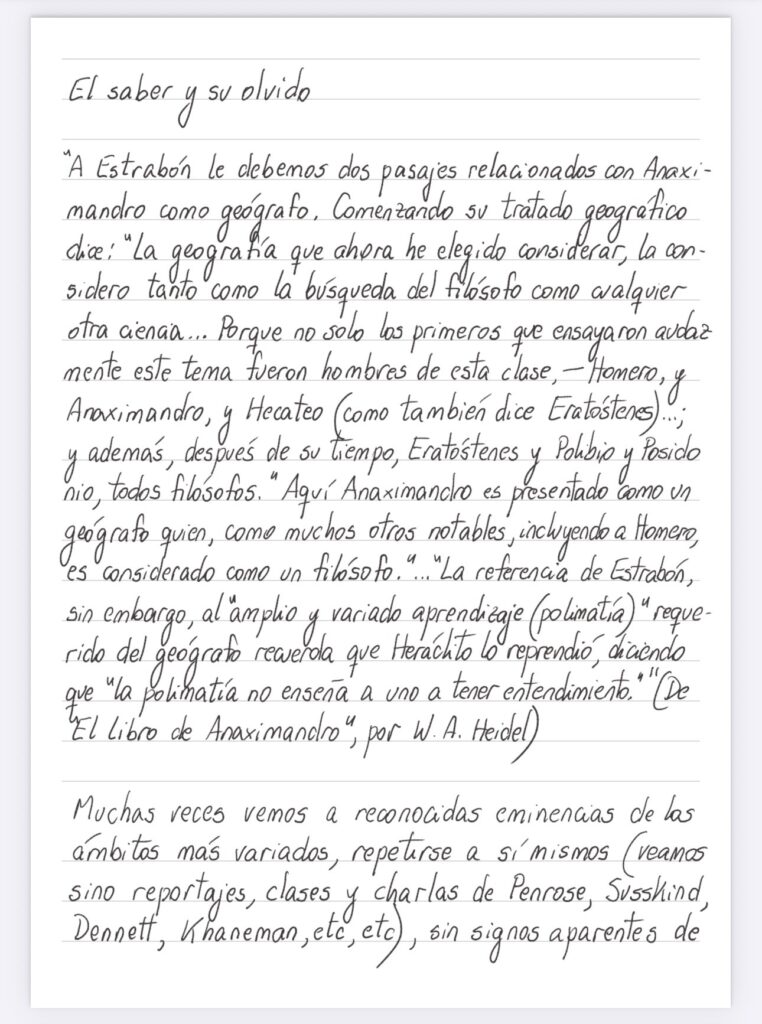 El saber y su olvido
"A Estrabón le debemos dos pasajes relacionados con Anaxi-
mandro como geógrafo. Comenzando su tratado geográfico
dice: "La geografía que ahora he elegido considerar, la con-
sidero tanto como la búsqueda del filósofo como cualquier
otra ciencia... Porque no solo los primeros que ensayaron audaz
mente este tema fueron hombres de esta clase, — Homero, y
Anaximandro, y Hecateo (como también dice Eratóstenes)...;
y además, después de su tiempo, Eratóstenes y Polibio y Posido
nio, todos filósofos." Aquí Anaximandro es presentado como un
geógrafo quien, como muchos otros notables, incluyendo a Homero,
es considerado como un filósofo."..."La referencia de Estrabón,
sin embargo, al "amplio y variado aprendizaje (polimatía)" reque-
rido del geógrafo recuerda que Heráclito lo reprendió, diciendo
que "la polimatía no enseña a uno a tener entendimiento." "(De
"El libro de Anaximandro", por W. A. Heidel)
Muchas veces vemos a reconocidas eminencias de los
ámbitos más variados, repetirse a sí mismos (veamos
sino reportajes, clases y charlas de Penrose, Susskind,
Dennett, Khaneman, etc, etc), sin signos aparentes de